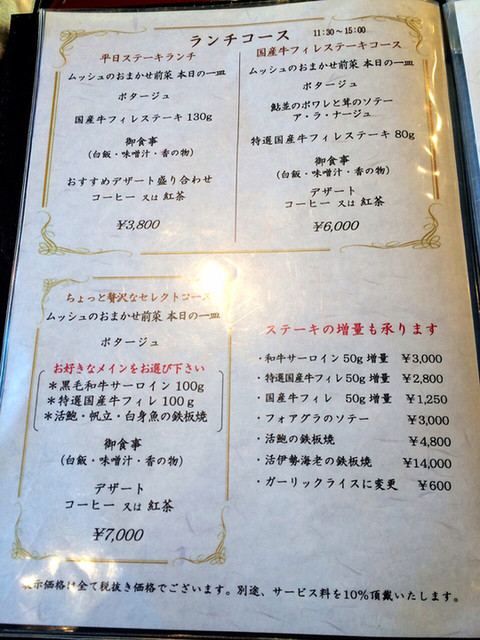 ランチコース 11:30～15:00
平日ステーキランチ
ムッシュのおまかせ前菜 本日の一皿
ポタージュ
国産牛フィレステーキ 130g
御食事
（白飯・味噌汁・香の物）
おすすめデザート盛り合わせ
コーヒー 又は 紅茶
¥3,800
国産牛フィレステーキコース
ムッシュのおまかせ前菜 本日の一皿
ポタージュ
鮎並のポワレと茸のソテー
ア・ラ・ナージュ
特選国産牛フィレステーキ 80g
御食事
（白飯・味噌汁・香の物）
デザート
コーヒー 又は 紅茶
¥6,000
ちょっと贅沢なセレクトコース
ムッシュのおまかせ前菜 本日の一皿
ポタージュ
お好きなメインをお選び下さい
＊黒毛和牛サーロイン 100g
＊特選国産牛フィレ 100g
＊活鮑・帆立・白身魚の鉄板焼
御食事
（白飯・味噌汁・香の物）
デザート
コーヒー 又は 紅茶
¥7,000
ステーキの増量も承ります
・和牛サーロイン 50g 増量 ¥3,000
・特選国産牛フィレ 50g 増量 ¥2,800
・国産牛フィレ 50g 増量 ¥1,250
・フォアグラのソテー ¥3,000
・活鮑の鉄板焼 ¥4,800
・活伊勢海老の鉄板焼 ¥14,000
・ガーリックライスに変更 ¥600
表示価格は全て税抜き価格でございます。別途、サービス料を10%頂戴いたします。